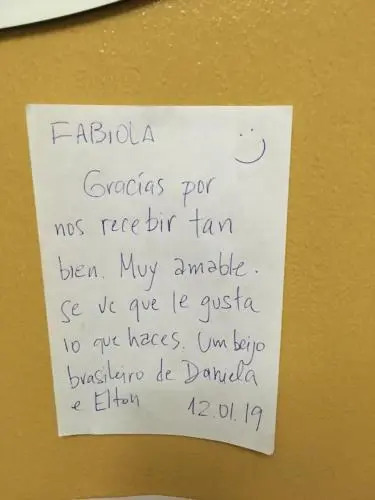 FABIOLA :)
Gracias por
nos recebir tan
bien. Muy amable.
se ve que le gusta
lo que haces. Um beijo
brasileiro de Daniela
e Elton 12.01.19